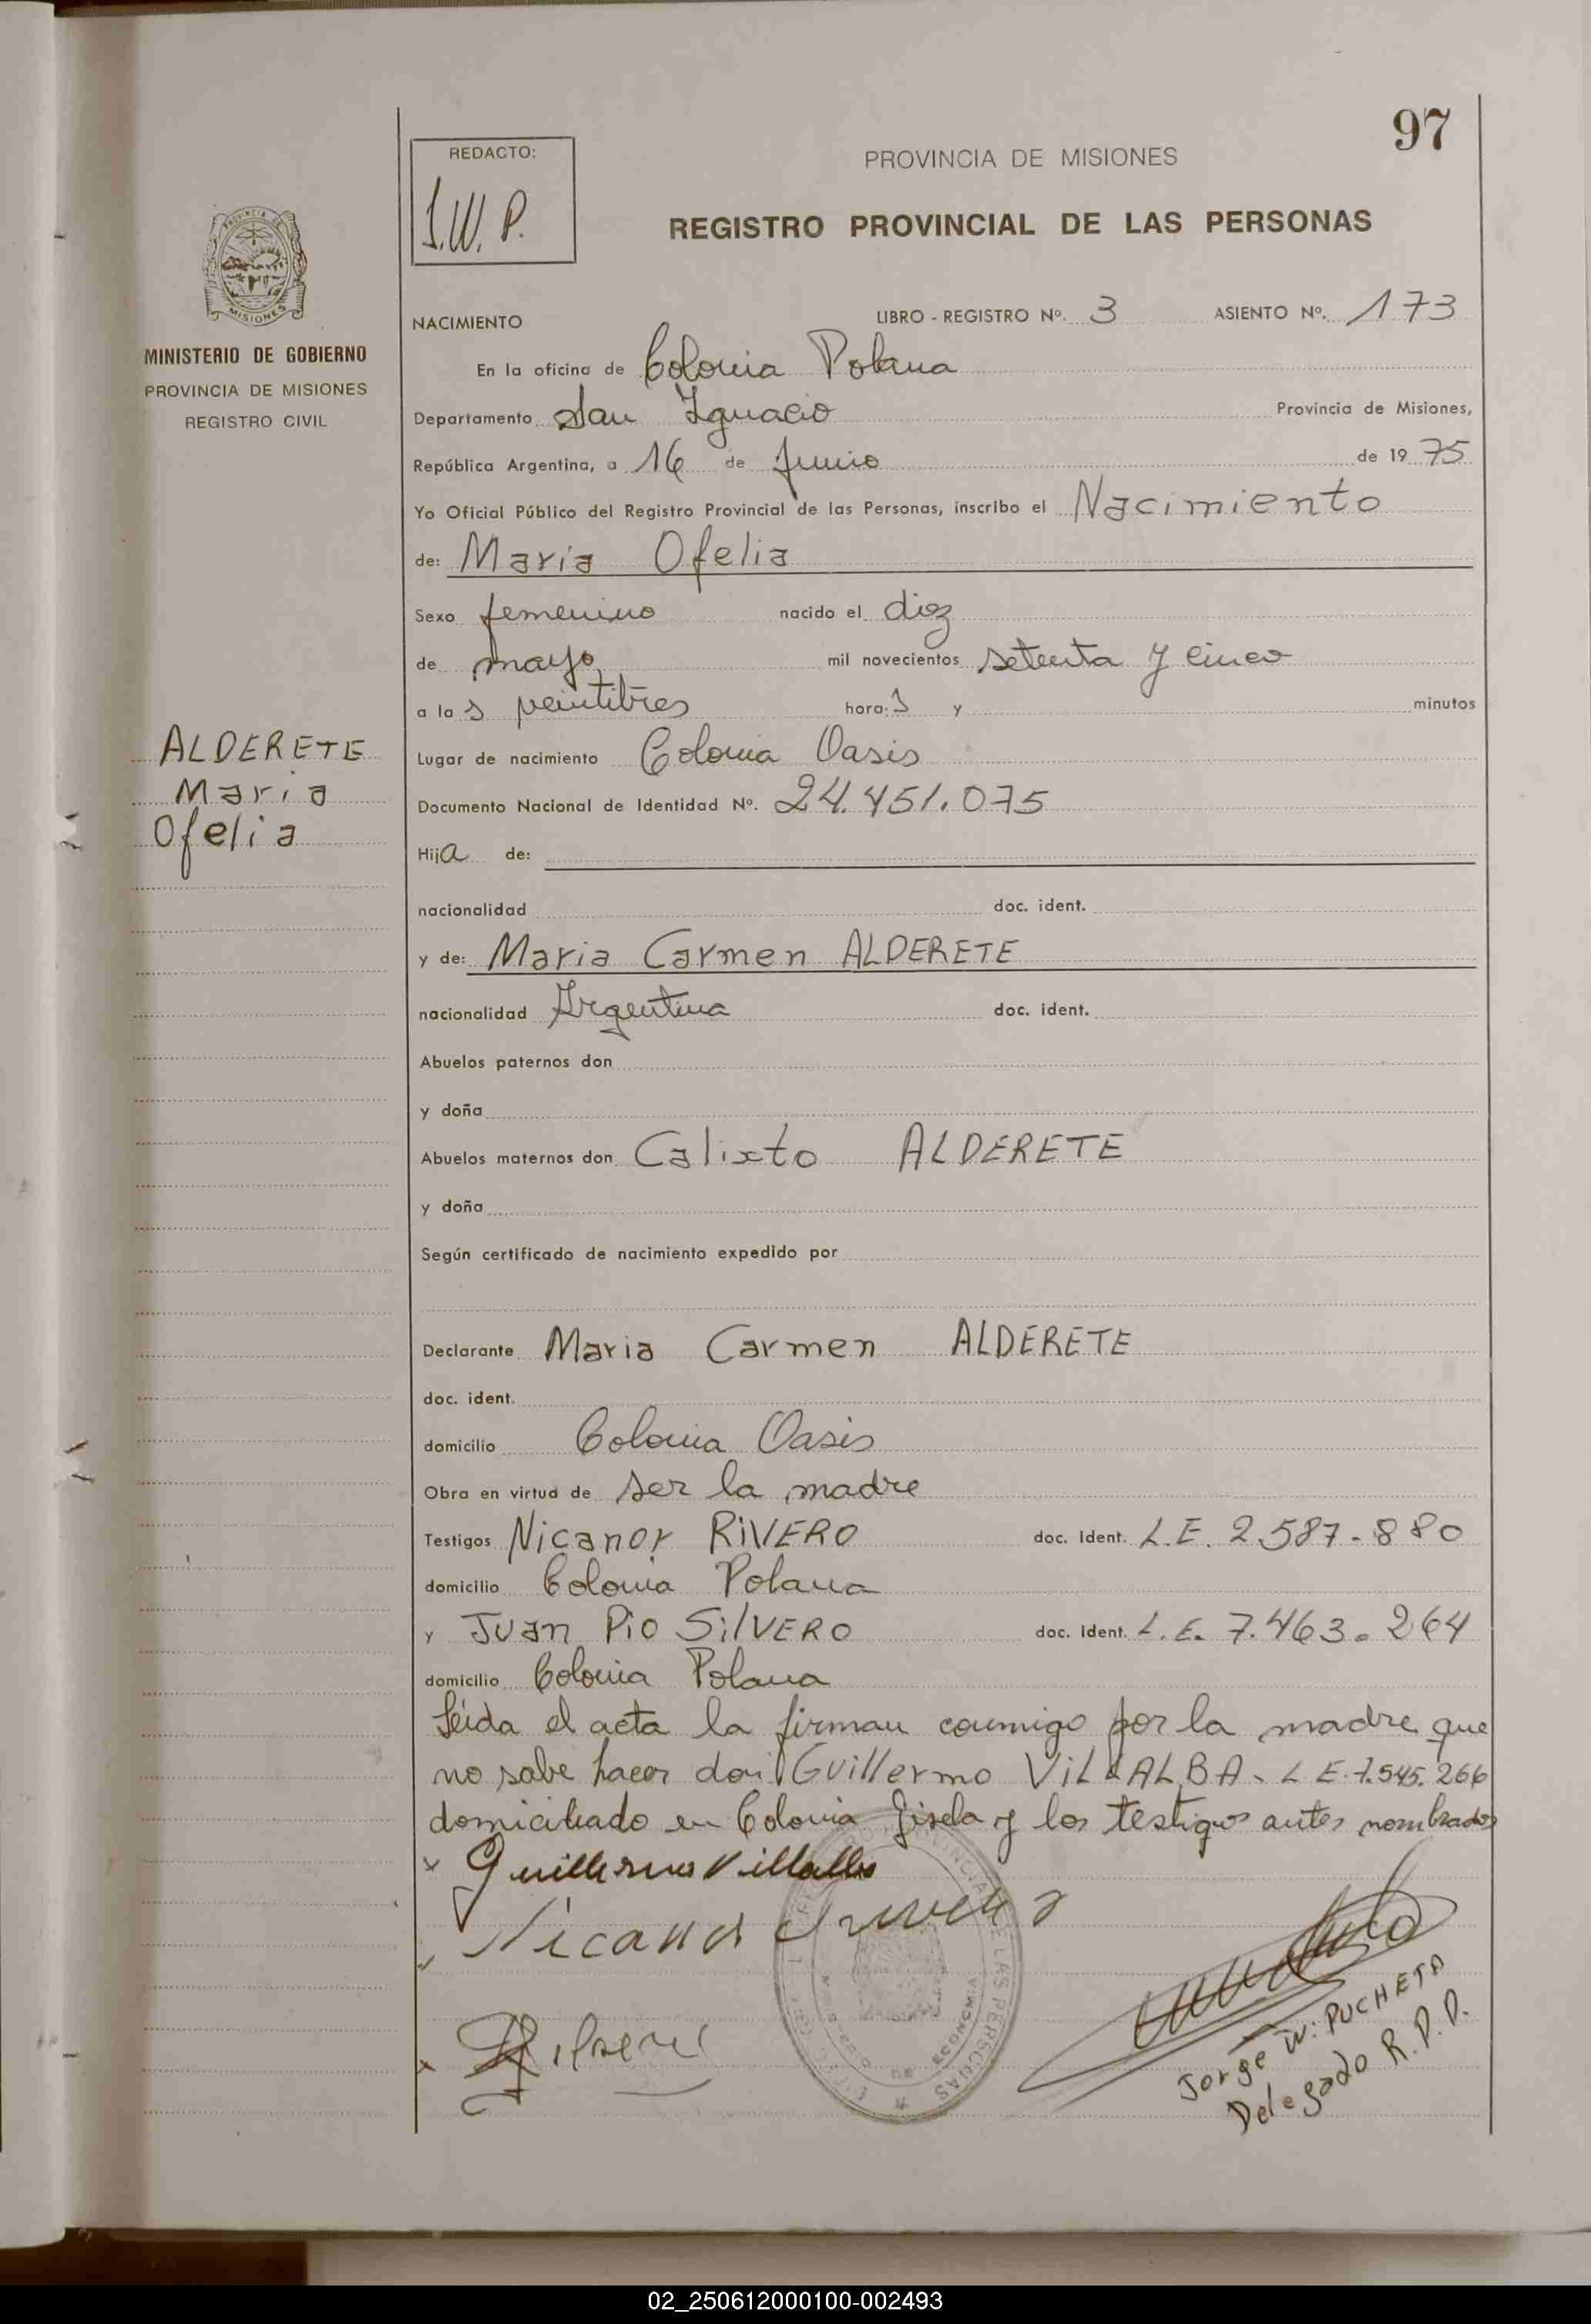 97
REDACTO:
J.W.P.
PROVINCIA DE MISIONES
REGISTRO PROVINCIAL DE LAS PERSONAS
MISIONES
MINISTERIO DE GOBIERNO
PROVINCIA DE MISIONES
REGISTRO CIVIL
NACIMIENTO LIBRO - REGISTRO Nº. 3 ASIENTO Nº. 173
En la oficina de Colonia Polana
Departamento San Ignacio Provincia de Misiones,
República Argentina, a 16 de Junio de 1975
Yo Oficial Público del Registro Provincial de las Personas, inscribo el Nacimiento
de: Maria Ofelia
Sexo femenino nacido el diez
de mayo mil novecientos setenta y cinco
a las veintitres horas y minutos
ALDERETE
Maria
Ofelia
Lugar de nacimiento Colonia Oasis
Documento Nacional de Identidad Nº. 24.451.075
Hija de:
nacionalidad doc. ident.
y de: Maria Carmen ALDERETE
nacionalidad Argentina doc. ident.
Abuelos paternos don
y doña
Abuelos maternos don Calixto ALDERETE
y doña
Según certificado de nacimiento expedido por
Declarante Maria Carmen ALDERETE
doc. ident.
domicilio Colonia Oasis
Obra en virtud de ser la madre
Testigos Nicanor RIVERO doc. Ident. L.E. 2.587-880
domicilio Colonia Polana
y Juan Pio SilVERO doc. Ident. L.E. 7.463.264
domicilio Colonia Polana
Leida el acta la firman conmigo por la madre que
no sabe hacer don Guillermo VILLALBA - L E. 7.545.266
domiciliado en Colonia Gisela y los testigos antes nombrados
x Guillermo Villalba
Nicanor
x Silvero
Jorge W. PUCHETA
Delegado R.P.P.
02_250612000100-002493